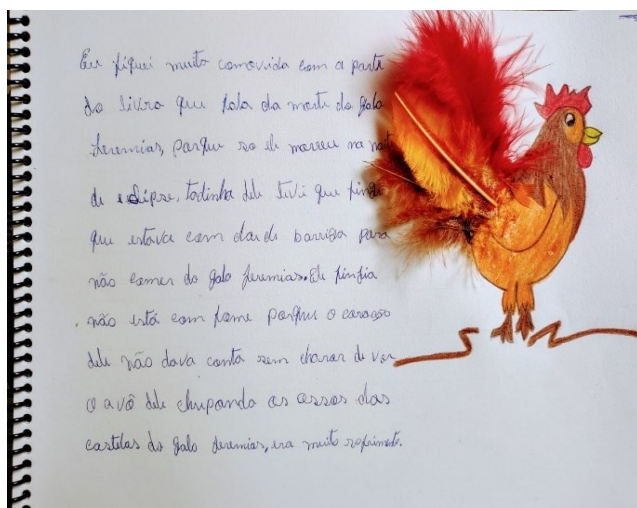 Eu fiquei muito comovida com a parte
do livro que fala da morte do galo
Jeremias, porque só ele morreu na noite
de eclipse, todinha dele tive que fingir
que estava com dor de barriga para
não comer do galo Jeremias. Ele fingia
não está com fome porque o coração
dele não dava conta sem chorar de ver
o avô dele chupando os ossos das
costelas do galo Jeremias, era muito sofrimento.